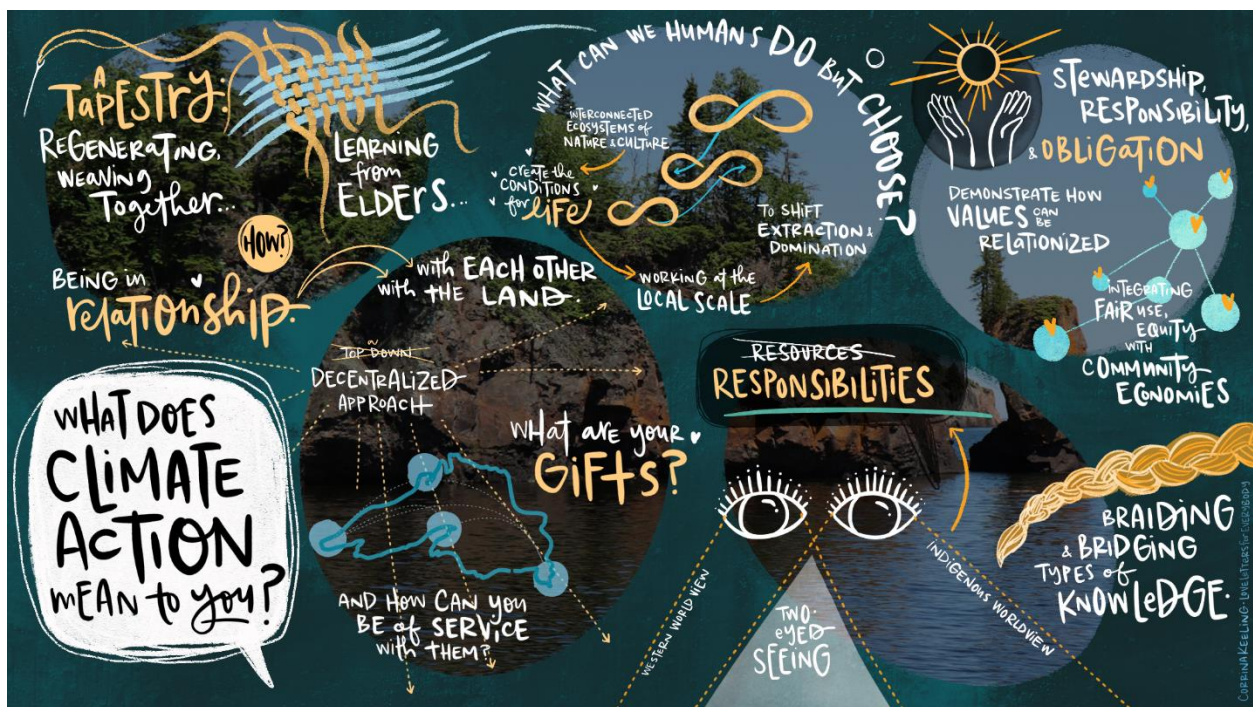 A
TAPESTRY:
REGENERATING,
WEAVING
Together...
LEARNING
from
ELDERS...
HOW?
BEING in
relationship.
with EACH OTHER
with THE LAND.
WHAT CAN WE HUMANS DO BUT CHOOSE?
INTERCONNECTED
ECOSYSTEMS of
NATURE & CULTURE
create the
CONDITIONS
for life
WORKING AT THE
LOCAL SCALE
TO SHIFT
EXTRACTION &
DOMINATION
STEWARDSHIP,
RESPONSIBILITY,
& OBLIGATION
DEMONSTRATE HOW
VALUES CAN BE
RELATIONIZED
INTEGRATING
FAIR USE,
EQUITY
WITH
COMMUNITY
ECONOMIES
WHAT DOES
CLIMATE
ACTION
MEAN to you?
TOP DOWN
DECENTRALIZED
APPROACH
WHAT ARE YOUR
GIFTS?
AND HOW CAN YOU
BE of SERVICE
with THEM?
RESOURCES
RESPONSIBILITIES
WESTERN WORLD VIEW
TWO-
EYED
SEEING
INDIGENOUS WORLDVIEW
BRAIDING
& BRIDGING
TYPES of
KNOWLEDGE.
CORRINA KEELING · LOVELETTERSforEVERYBODY